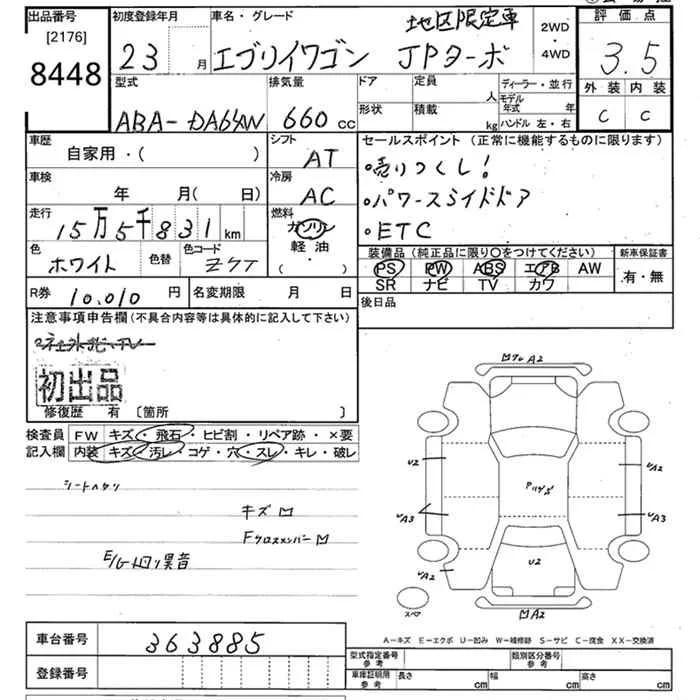 出品番号
[2176]
8448
初度登録年月
23 月
車名・グレード
地区限定車
エブリイワゴン JPターボ
2WD
・
4WD
評価点
3.5
外装 内装
C C
型式
ABA-DA64W
排気量
660 cc
ドア
形状
定員
人
積載
kg
ディーラー・並行
モデル年式 年
ハンドル 左・右
車歴
自家用・( )
シフト
AT
車検
年 月( 日)
冷房
AC
走行
15万5千831 km
燃料
ガソリン
軽油
( )
色
ホワイト
色替
色コード
Z7T
R券 10,010 円
名変期限 月 日
セールスポイント (正常に機能するものに限ります)
・売りつくし!
・パワースライドドア
・ETC
装備品 (純正品に限り○をつけてください)
PS PW ABS エアB AW
SR ナビ TV カワ
新車保証書
有・無
後日品
注意事項申告欄(不具合内容等は具体的に記入して下さい)
初出品
修復歴 有 〔箇所 〕
検査員
記入欄
FW キズ・飛石・ヒビ割・リペア跡・×要
内装 キズ・汚レ・コゲ・穴・スレ・キレ・破レ
シートヘタリ
キズ
Fクロスメンバー
異音
A2
U2
A3
A2
U2
A2
A3
A2
スペア
A-キズ E-エクボ U-凹み W-補修跡 S-サビ C-腐食 XX-交換済
車台番号 363885
登録番号
型式指定番号
参考
類別区分番号
参考
車庫証明用
参考
長さ cm
幅 cm
高さ cm